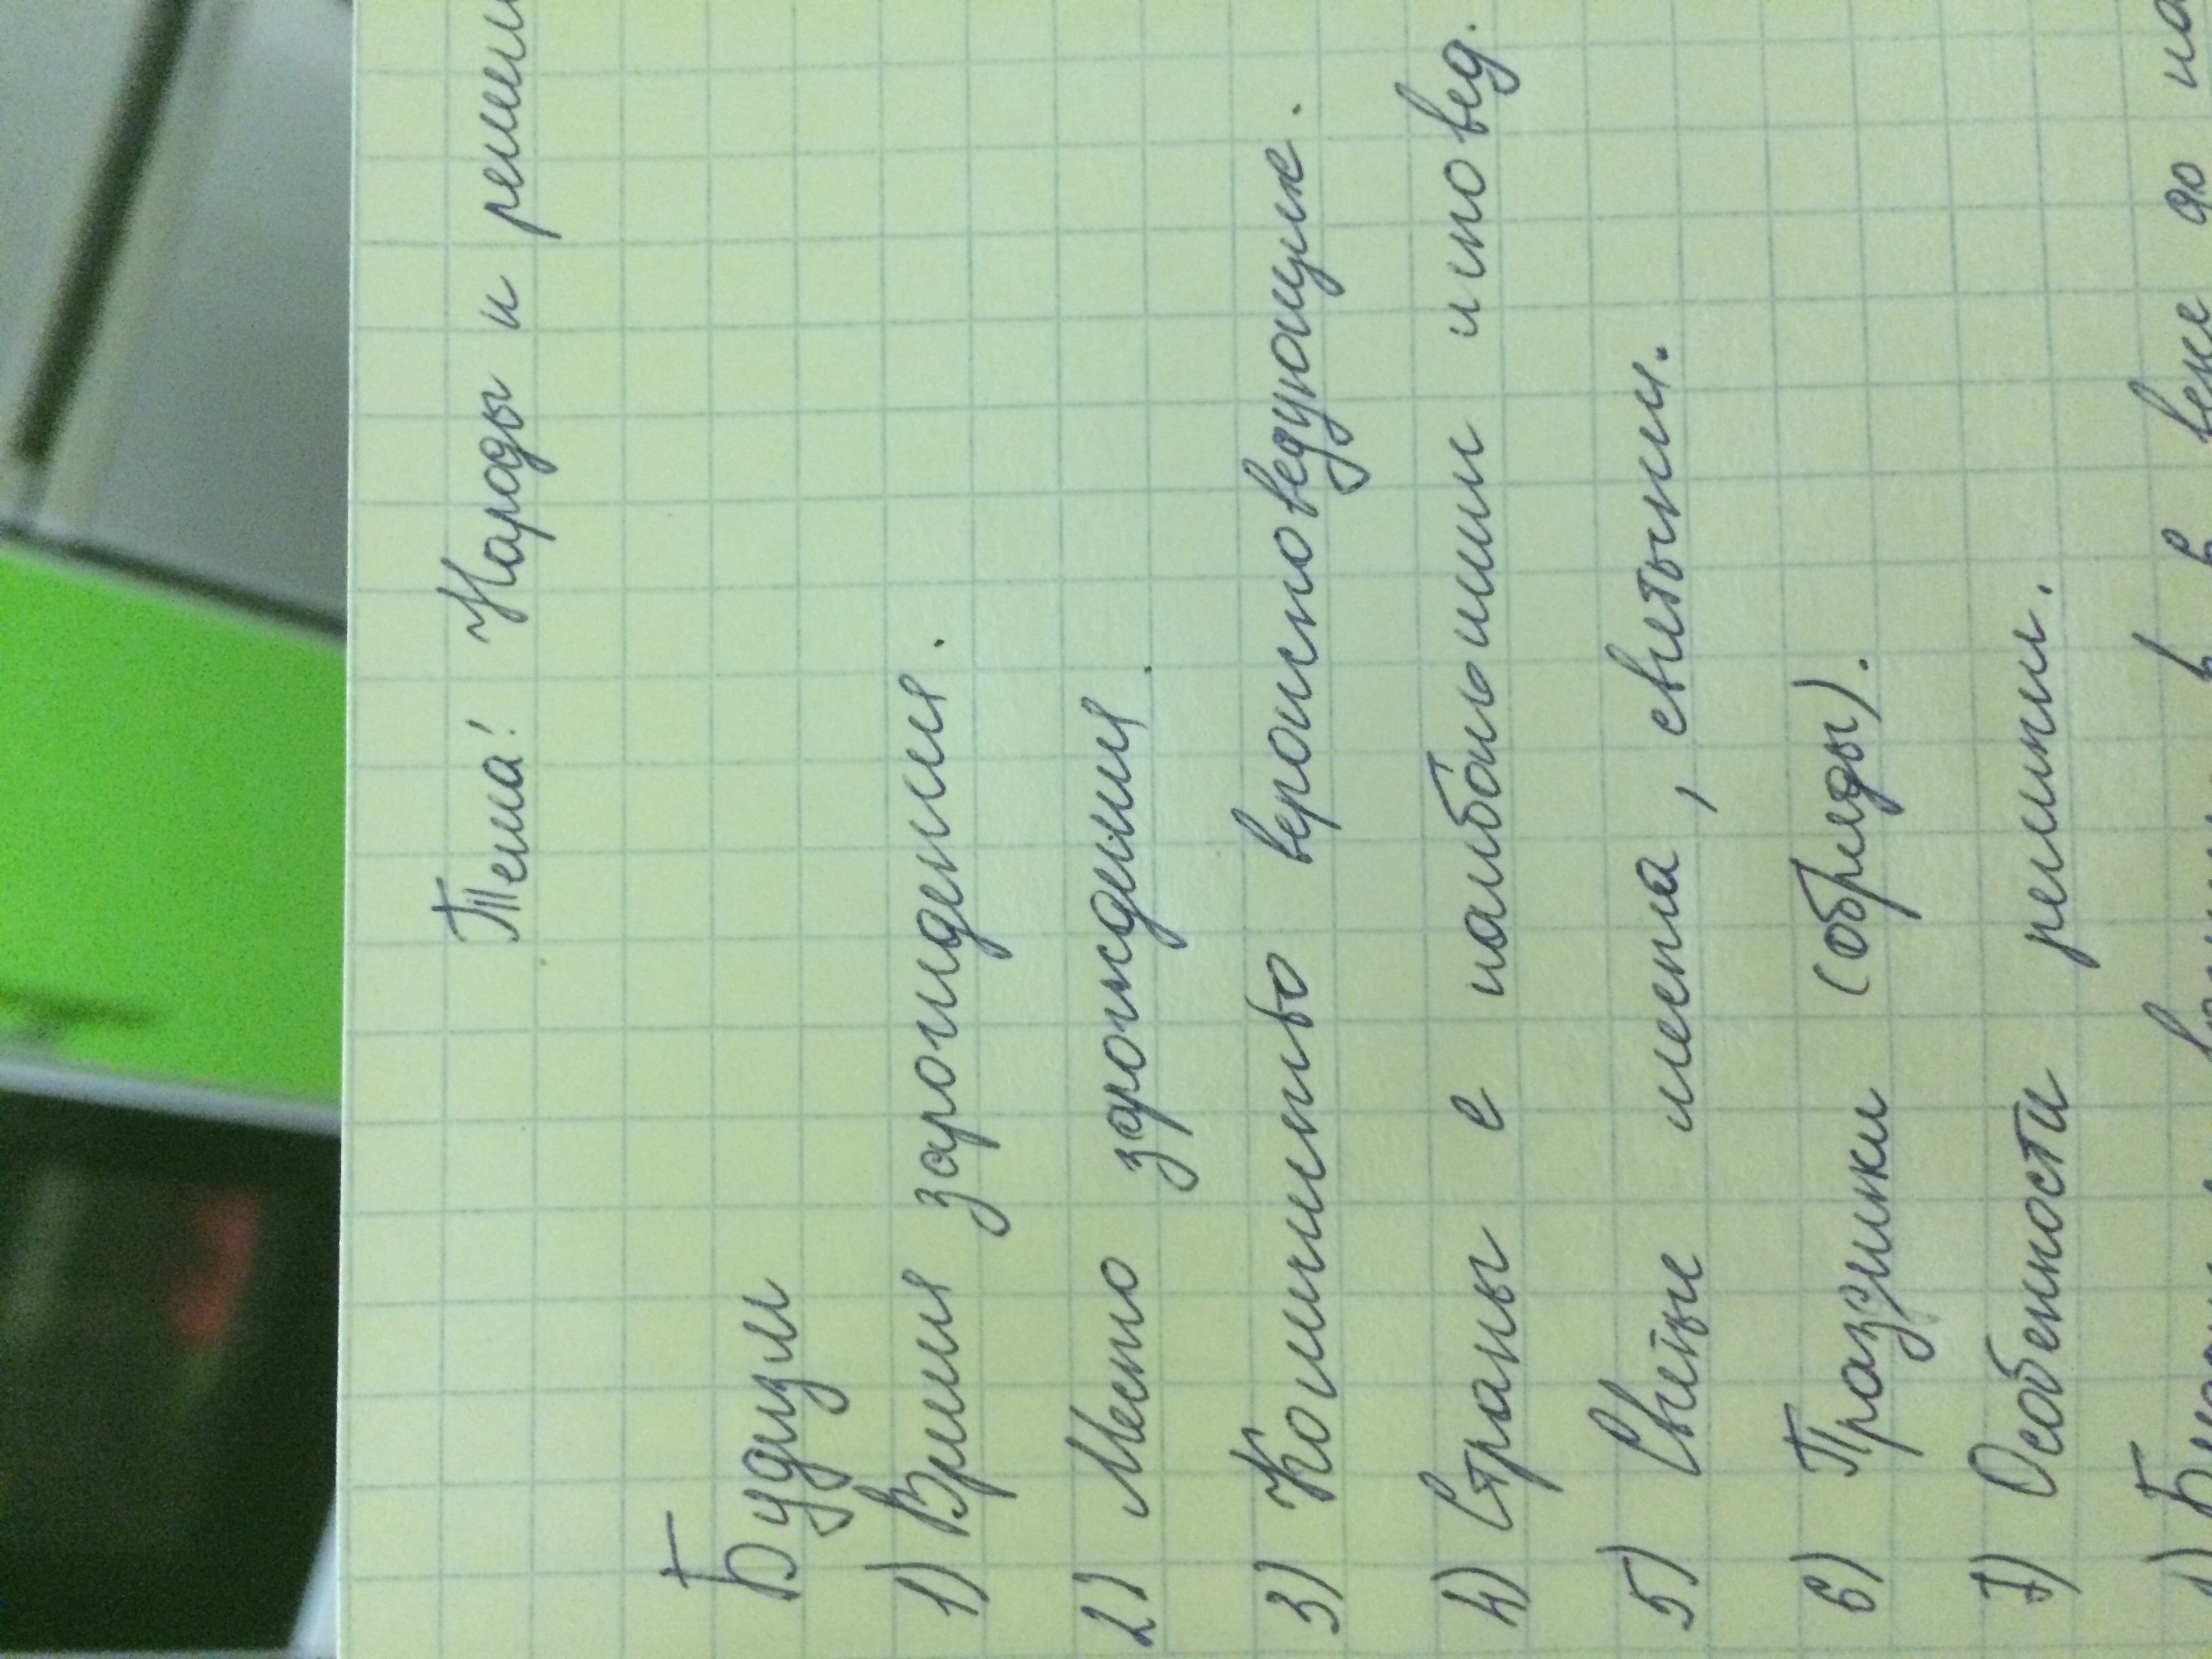 Тема: Народы и
Будизм
1) Время зарождения.
2) Место зрождения.
3) Количество вероисповедующих.
4) Страны с наибольшим испов ед.
5) Святые места, святыни.
6) Празники (обряды).
7) Особенности религии.
в в веке до на